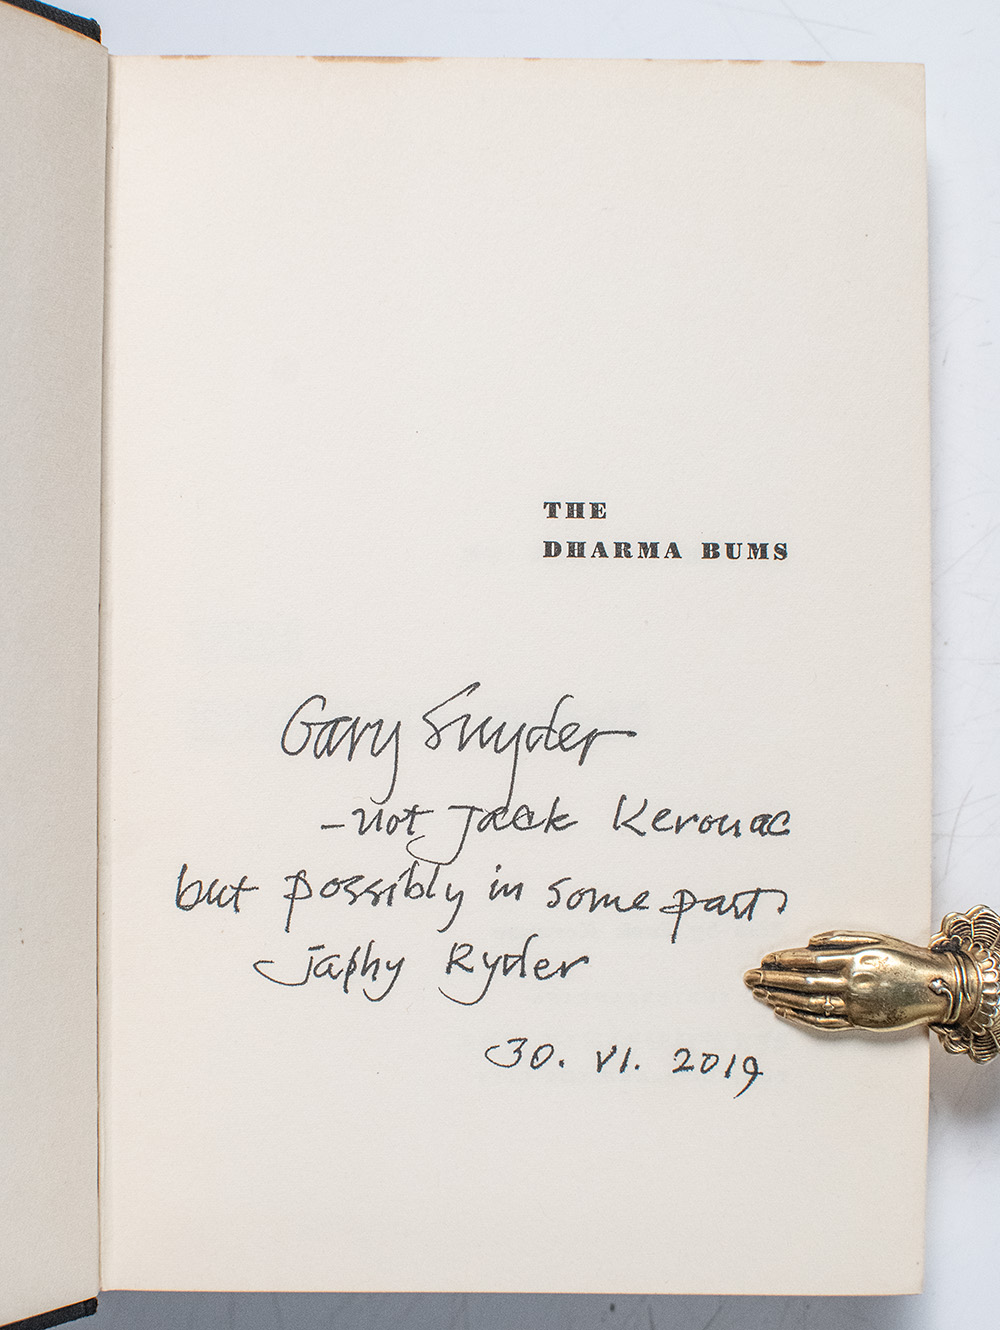 THE
DHARMA BUMS
Gary Snyder
- not Jack Kerouac
but possibly in some part,
Japhy Ryder
30. VI. 2019